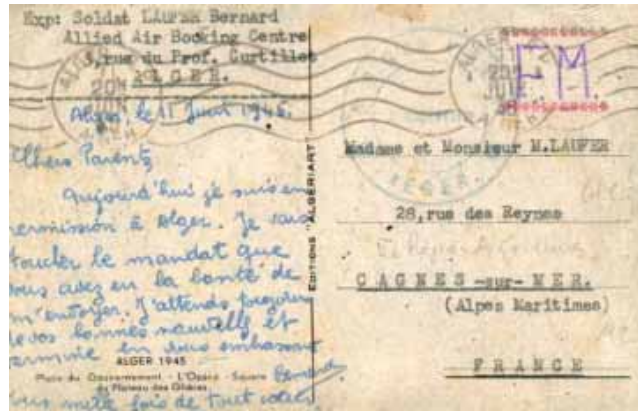 Exp: Soldat LAUFER Bernard
Allied Air Booking Centre
3, rue du Prof. Curtillet
ALGER.
Alger, le 11 Juin 1945.
Chers Parents
Aujourd'hui je suis en
permission à Alger. Je vais
toucher le mandat que
vous avez eu la bonté de
m'envoyer. J'attends toujours
de vos bonnes nouvelles et
termine en vous embrassant
ALGER 1945
Place du Gouvernement - L'Opéra - Square Bernard
du Plateau des Glières
mille fois de tout cœur.
EDITIONS "ALGERIART"
ALGER
F.M.
ALGER
Madame et Monsieur M.LAUFER
28,rue des Reynes
CAGNES -sur- MER.
(Alpes Maritimes)
FRANCE